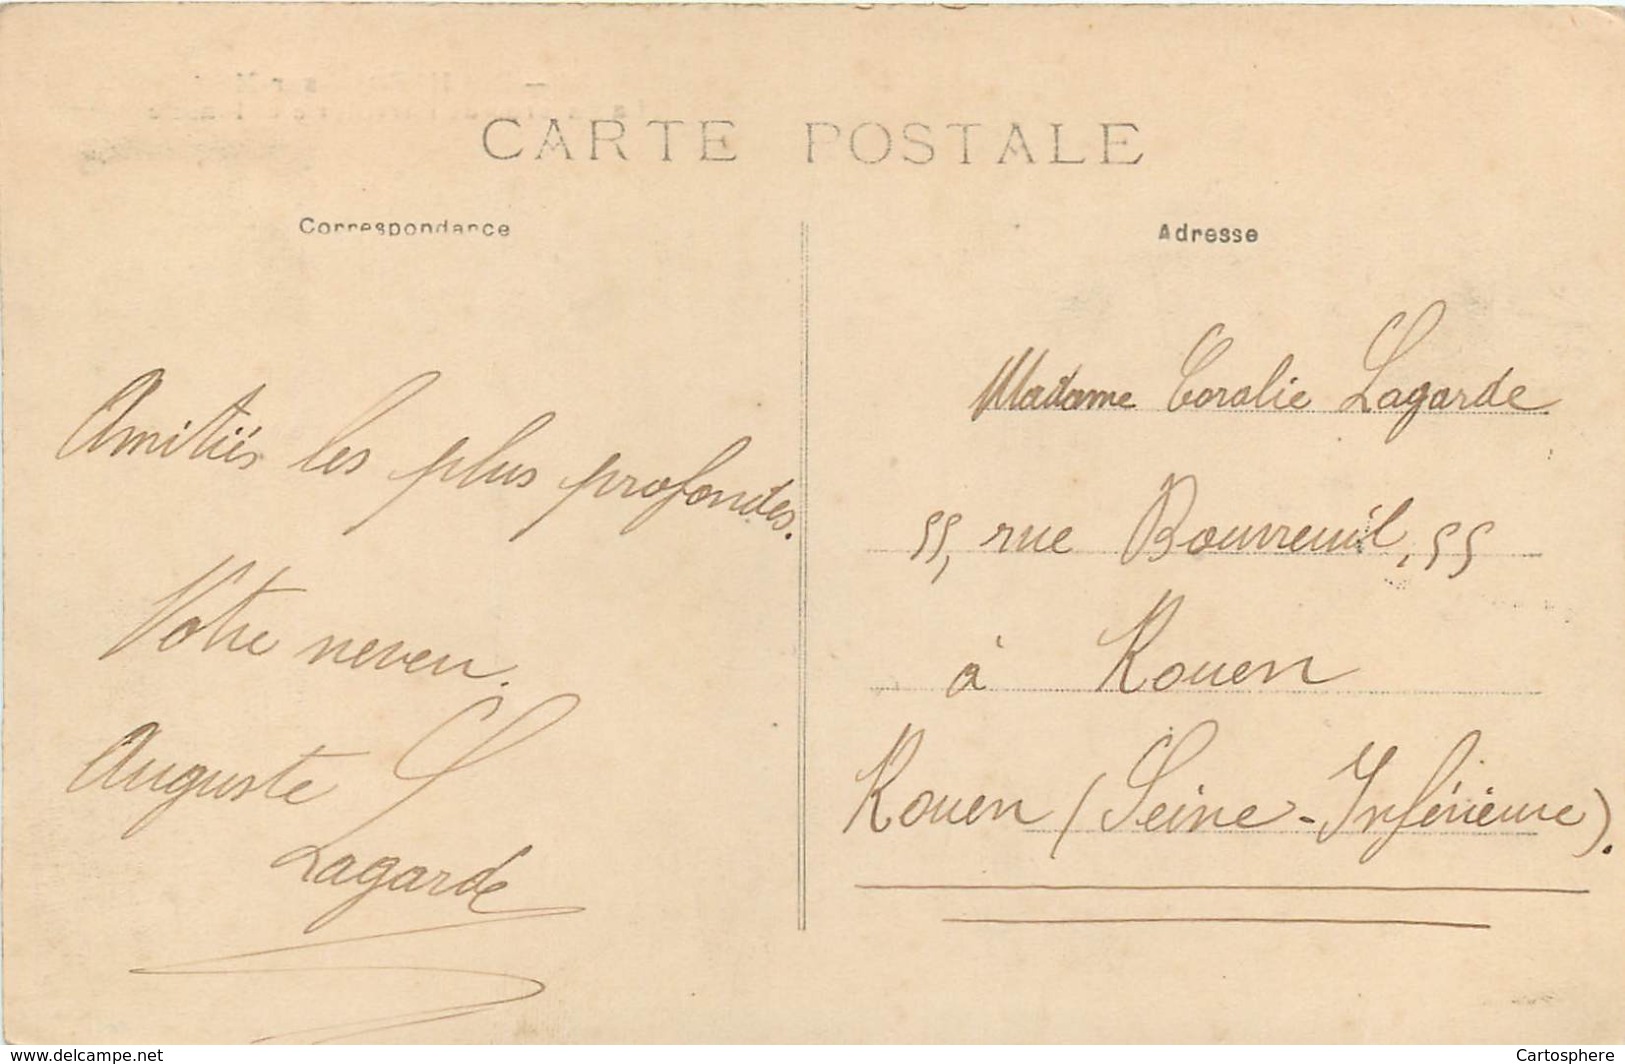 CARTE POSTALE
Correspondance
Amitiés les plus profondes.
Votre neveu.
Auguste L
Lagarde
Adresse
Madame Coralie Lagarde
55, rue Bouvreuil, 55
à Rouen
Rouen (Seine-Inférieure).
www.delcampe.net
Cartosphere